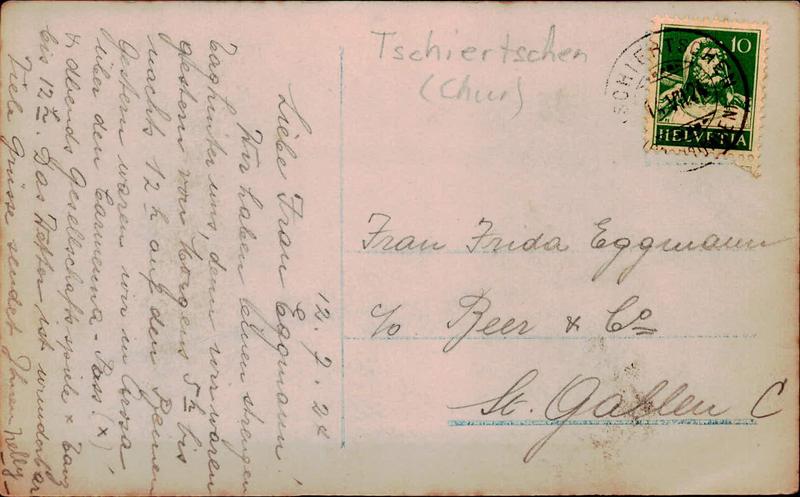 Tschiertschen
(Chur)
10
HELVETIA
TSCHIERTSCHEN
12. 7. 24
Liebe Frau Eggmann!
Wir haben einen strengen
Tag hinter uns, denn wir waren
gestern von Morgens 5 h bis
nachts 12 h auf den Beinen
Gestern waren wir in Arosa,
über den Carmenna-Pass (x)
& Abends Gesellschaftsspiele & Tanz
bis 12 h. Das Wetter ist wunderbar
Viele Grüsse sendet Ihnen Nelly
Frau Frida Eggmann
c/o Beer & Co
St. Gallen C